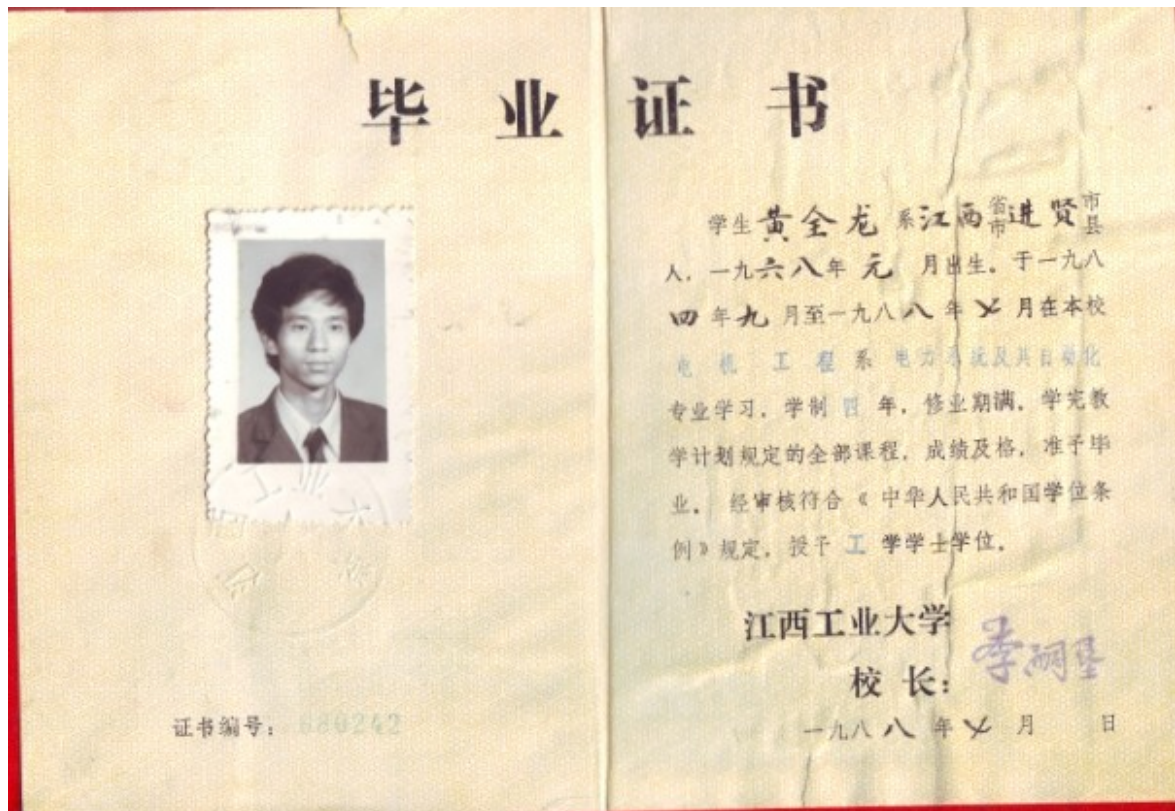 毕业证书
学生黄全龙系江西省市进贤市县
人，一九六八年元月出生。于一九八
四年九月至一九八八年七月在本校
电机工程系电力系统及其自动化
专业学习，学制四年，修业期满，学完教
学计划规定的全部课程，成绩及格，准予毕
业。经审核符合《中华人民共和国学位条
例》规定，授予工学学士学位。
江西工业大学
校长：
一九八八年七月 日
证书编号：880242